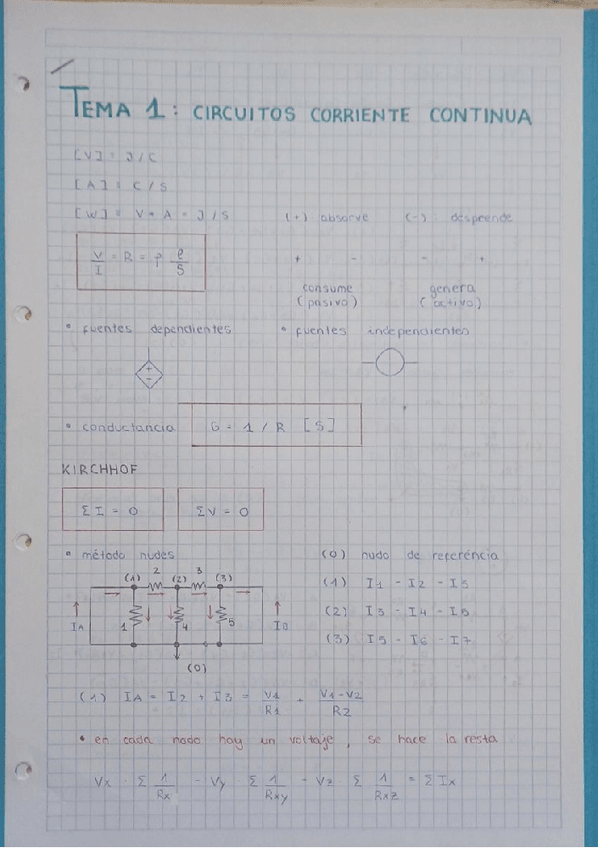 TEMA 1: CIRCUITOS CORRIENTE CONTINUA
[V] = J/C
[A] = C/S
[W] = V · A = J/S
(+) absorve (-) desprende
V/I = R = ρ ℓ/S
+ - - +
consume (pasivo) genera (activo)
• fuentes dependientes • fuentes independientes
+ -
• conductancia G = 1/R [S]
KIRCHHOF
ΣI = 0 ΣV = 0
• método nudes (0) nudo de referéncia
(1) 2 (2) 3 (3)
(1) I1 - I2 - I3
IA 1 4 5 IB
(2) I3 - I4 - I5
(0)
(3) I5 - I6 - I7
(1) IA = I2 + I3 = V1/R1 + V1-V2/R2
• en cada nodo hay un voltaje, se hace la resta
Vx · Σ 1/Rx - Vy · Σ 1/Rxy - Vz · Σ 1/Rxz = ΣIx